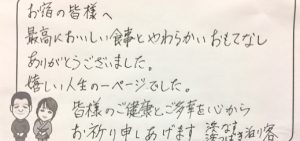 お宿の皆様へ
最高においしい食事とやわらかいおもてなし
ありがとうございました。
嬉しい人生の一ページでした。
皆様のご健康とご多幸を心から
お祈り申しあげます
泊り客